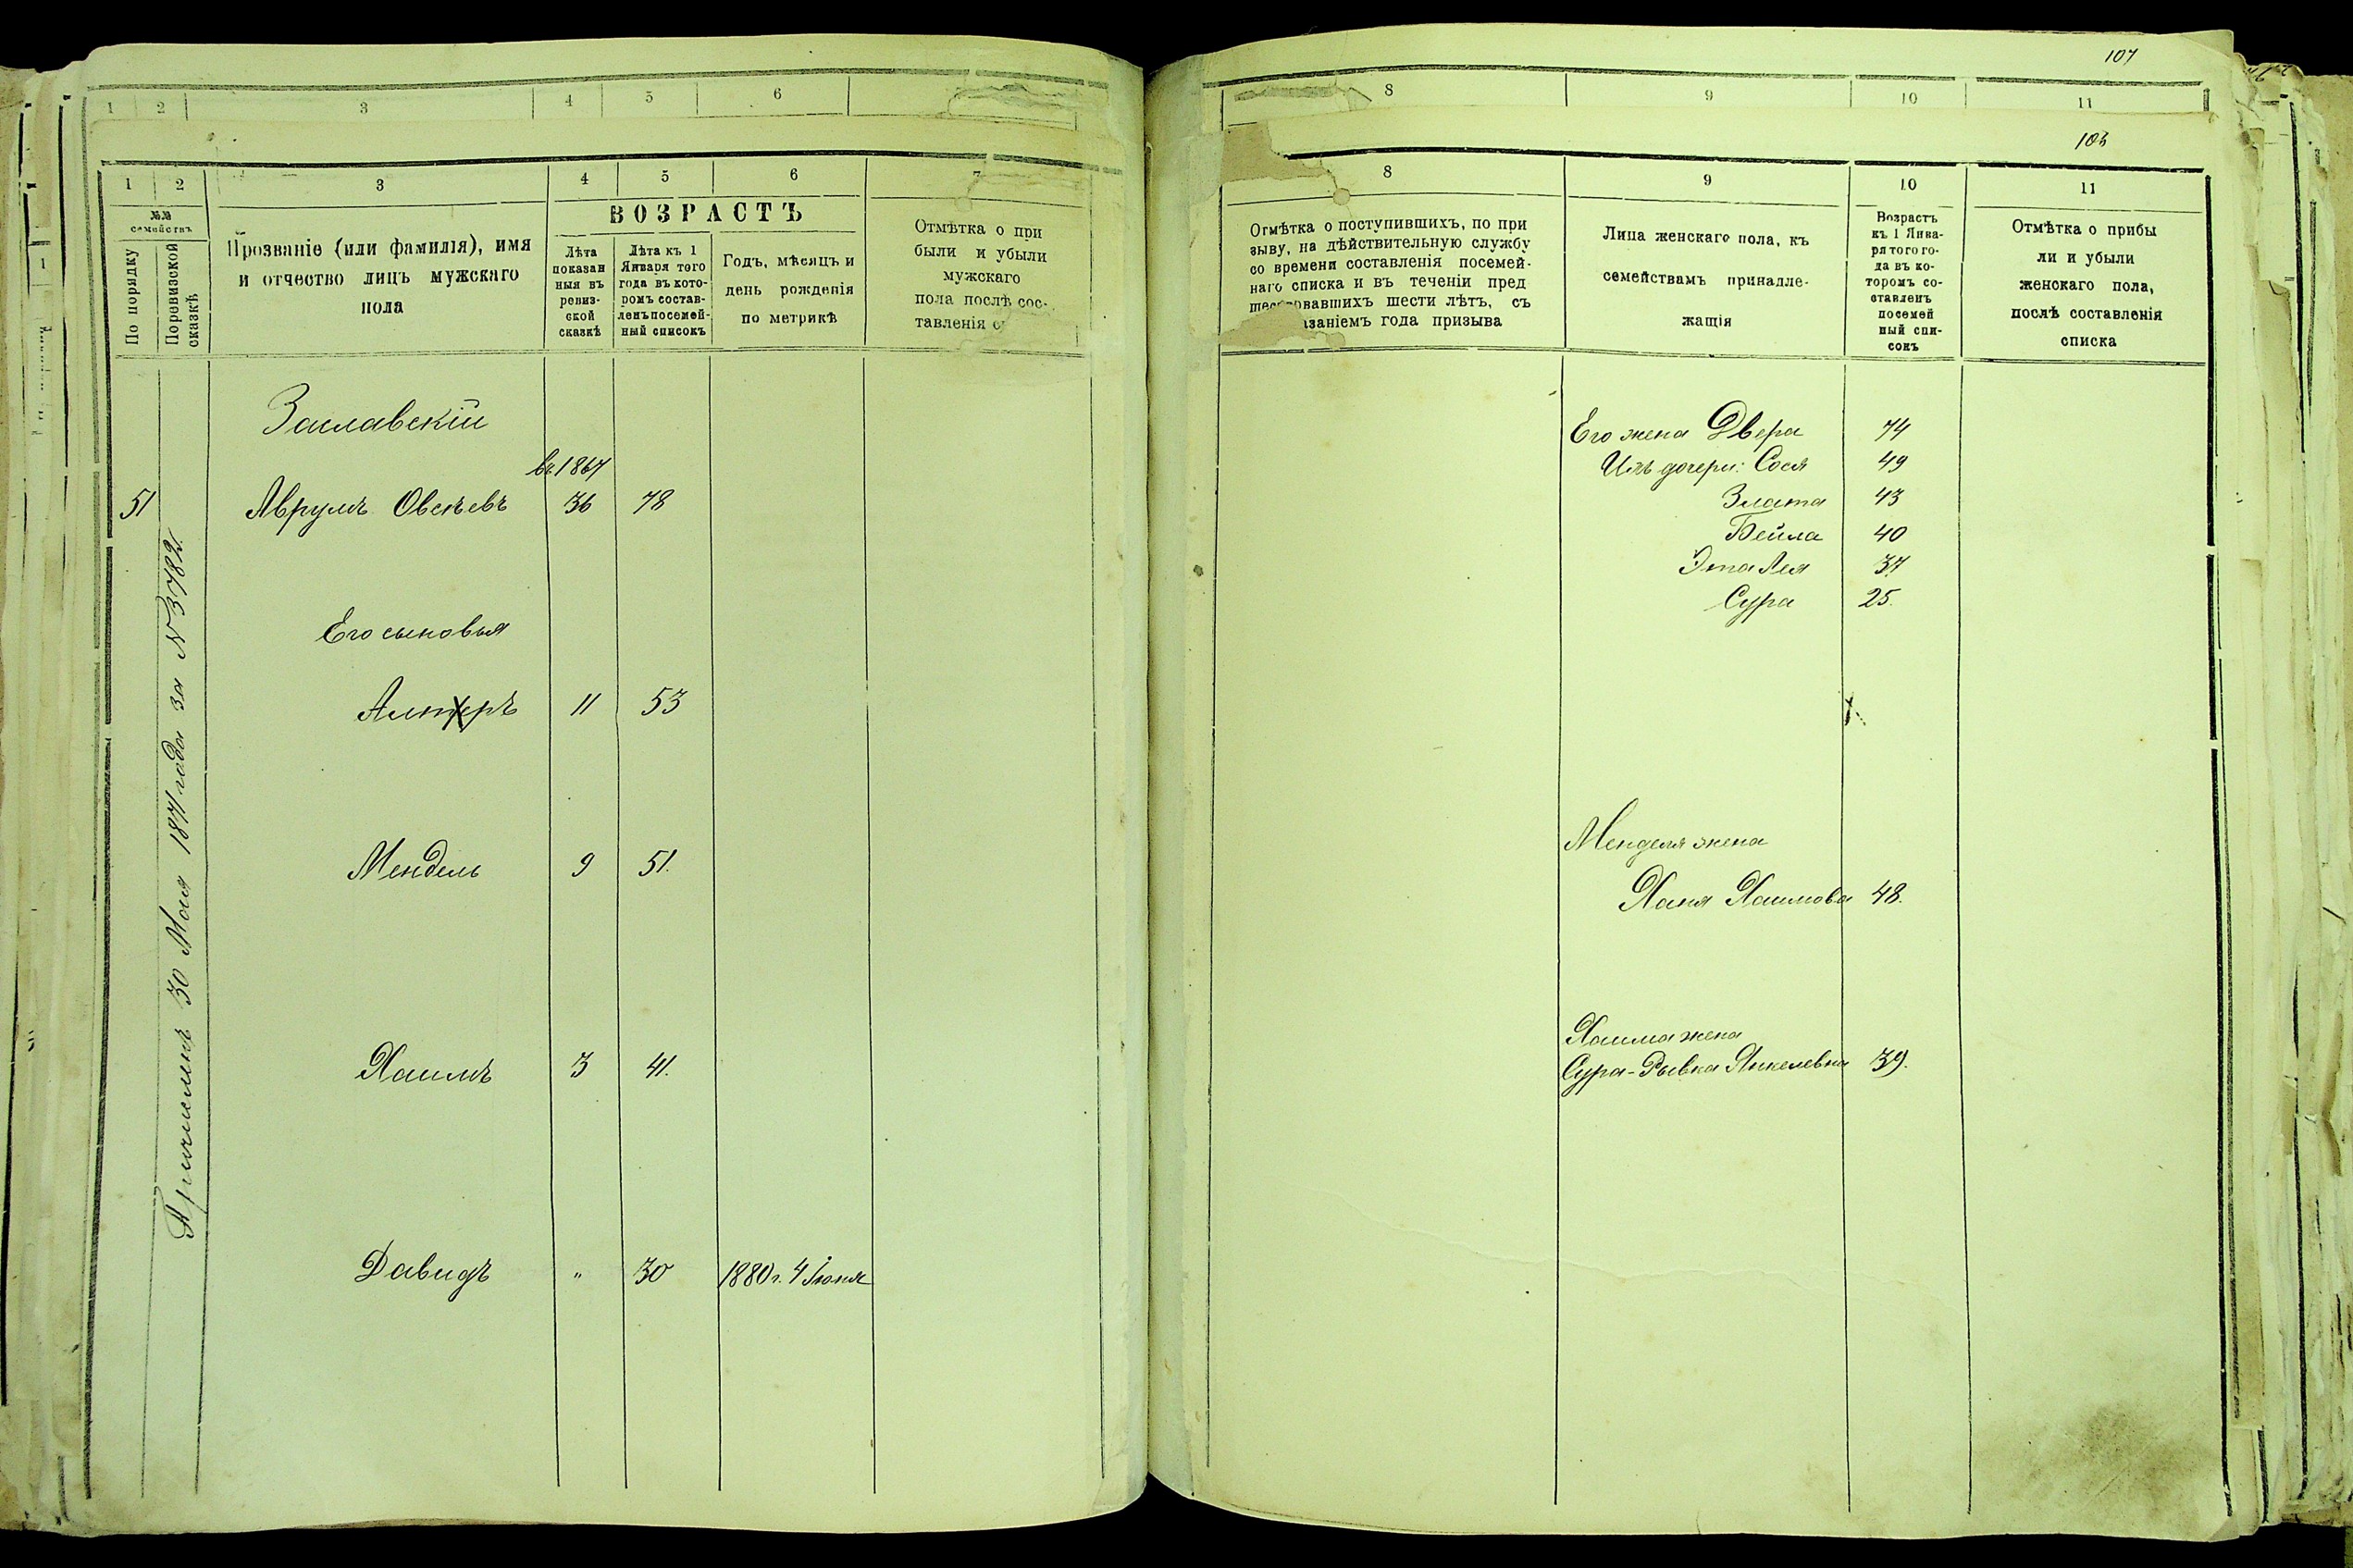 1 2 3 4 5 6
1 2 3 4 5 6 7
№№ семействъ
По порядку
По ревизской сказкѣ
Прозваніе (или фамилія), имя
и отчество лицъ мужскаго
пола
ВОЗРАСТЪ
Лѣта
показан
ныя въ
ревиз-
ской
сказкѣ
Лѣта къ 1
Января того
года въ кото-
ромъ состав-
ленъ посемей-
ный списокъ
Годъ, мѣсяцъ и
день рожденія
по метрикѣ
Отмѣтка о при
были и убыли
мужскаго
пола послѣ сос-
тавленія с
Заславскій
въ 1867
51 Аврумъ Овсѣевъ 36 78
Его сыновья
Алтеръ 11 53
Мендель 9 51.
Хаимъ 3 41.
Давидъ " 30 1880 г. 4 Іюня
Причислен 30 Мая 1871 года за № 3789.
107
8 9 10 11
103
8 9 10 11
Отмѣтка о поступившихъ, по при
зыву, на дѣйствительную службу
со времени составленія посемей-
наго списка и въ теченіи пред
шествовавшихъ шести лѣтъ, съ
азаніемъ года призыва
Лица женскаго пола, къ
семействамъ принадле-
жащія
Возрастъ
къ 1 Янва-
ря того го-
да въ ко-
торомъ со-
ставленъ
посемей
ный спи-
сокъ
Отмѣтка о прибы
ли и убыли
женскаго пола,
послѣ составленія
списка
Его жена Двера 74
Ихъ дочери: Сося 49
Злата 43
Бейла 40
Эта Лея 37
Сура 25.
Менделя жена
Ханя Хаимова 48.
Хаима жена
Сура-Рывка Янкелевна 39.